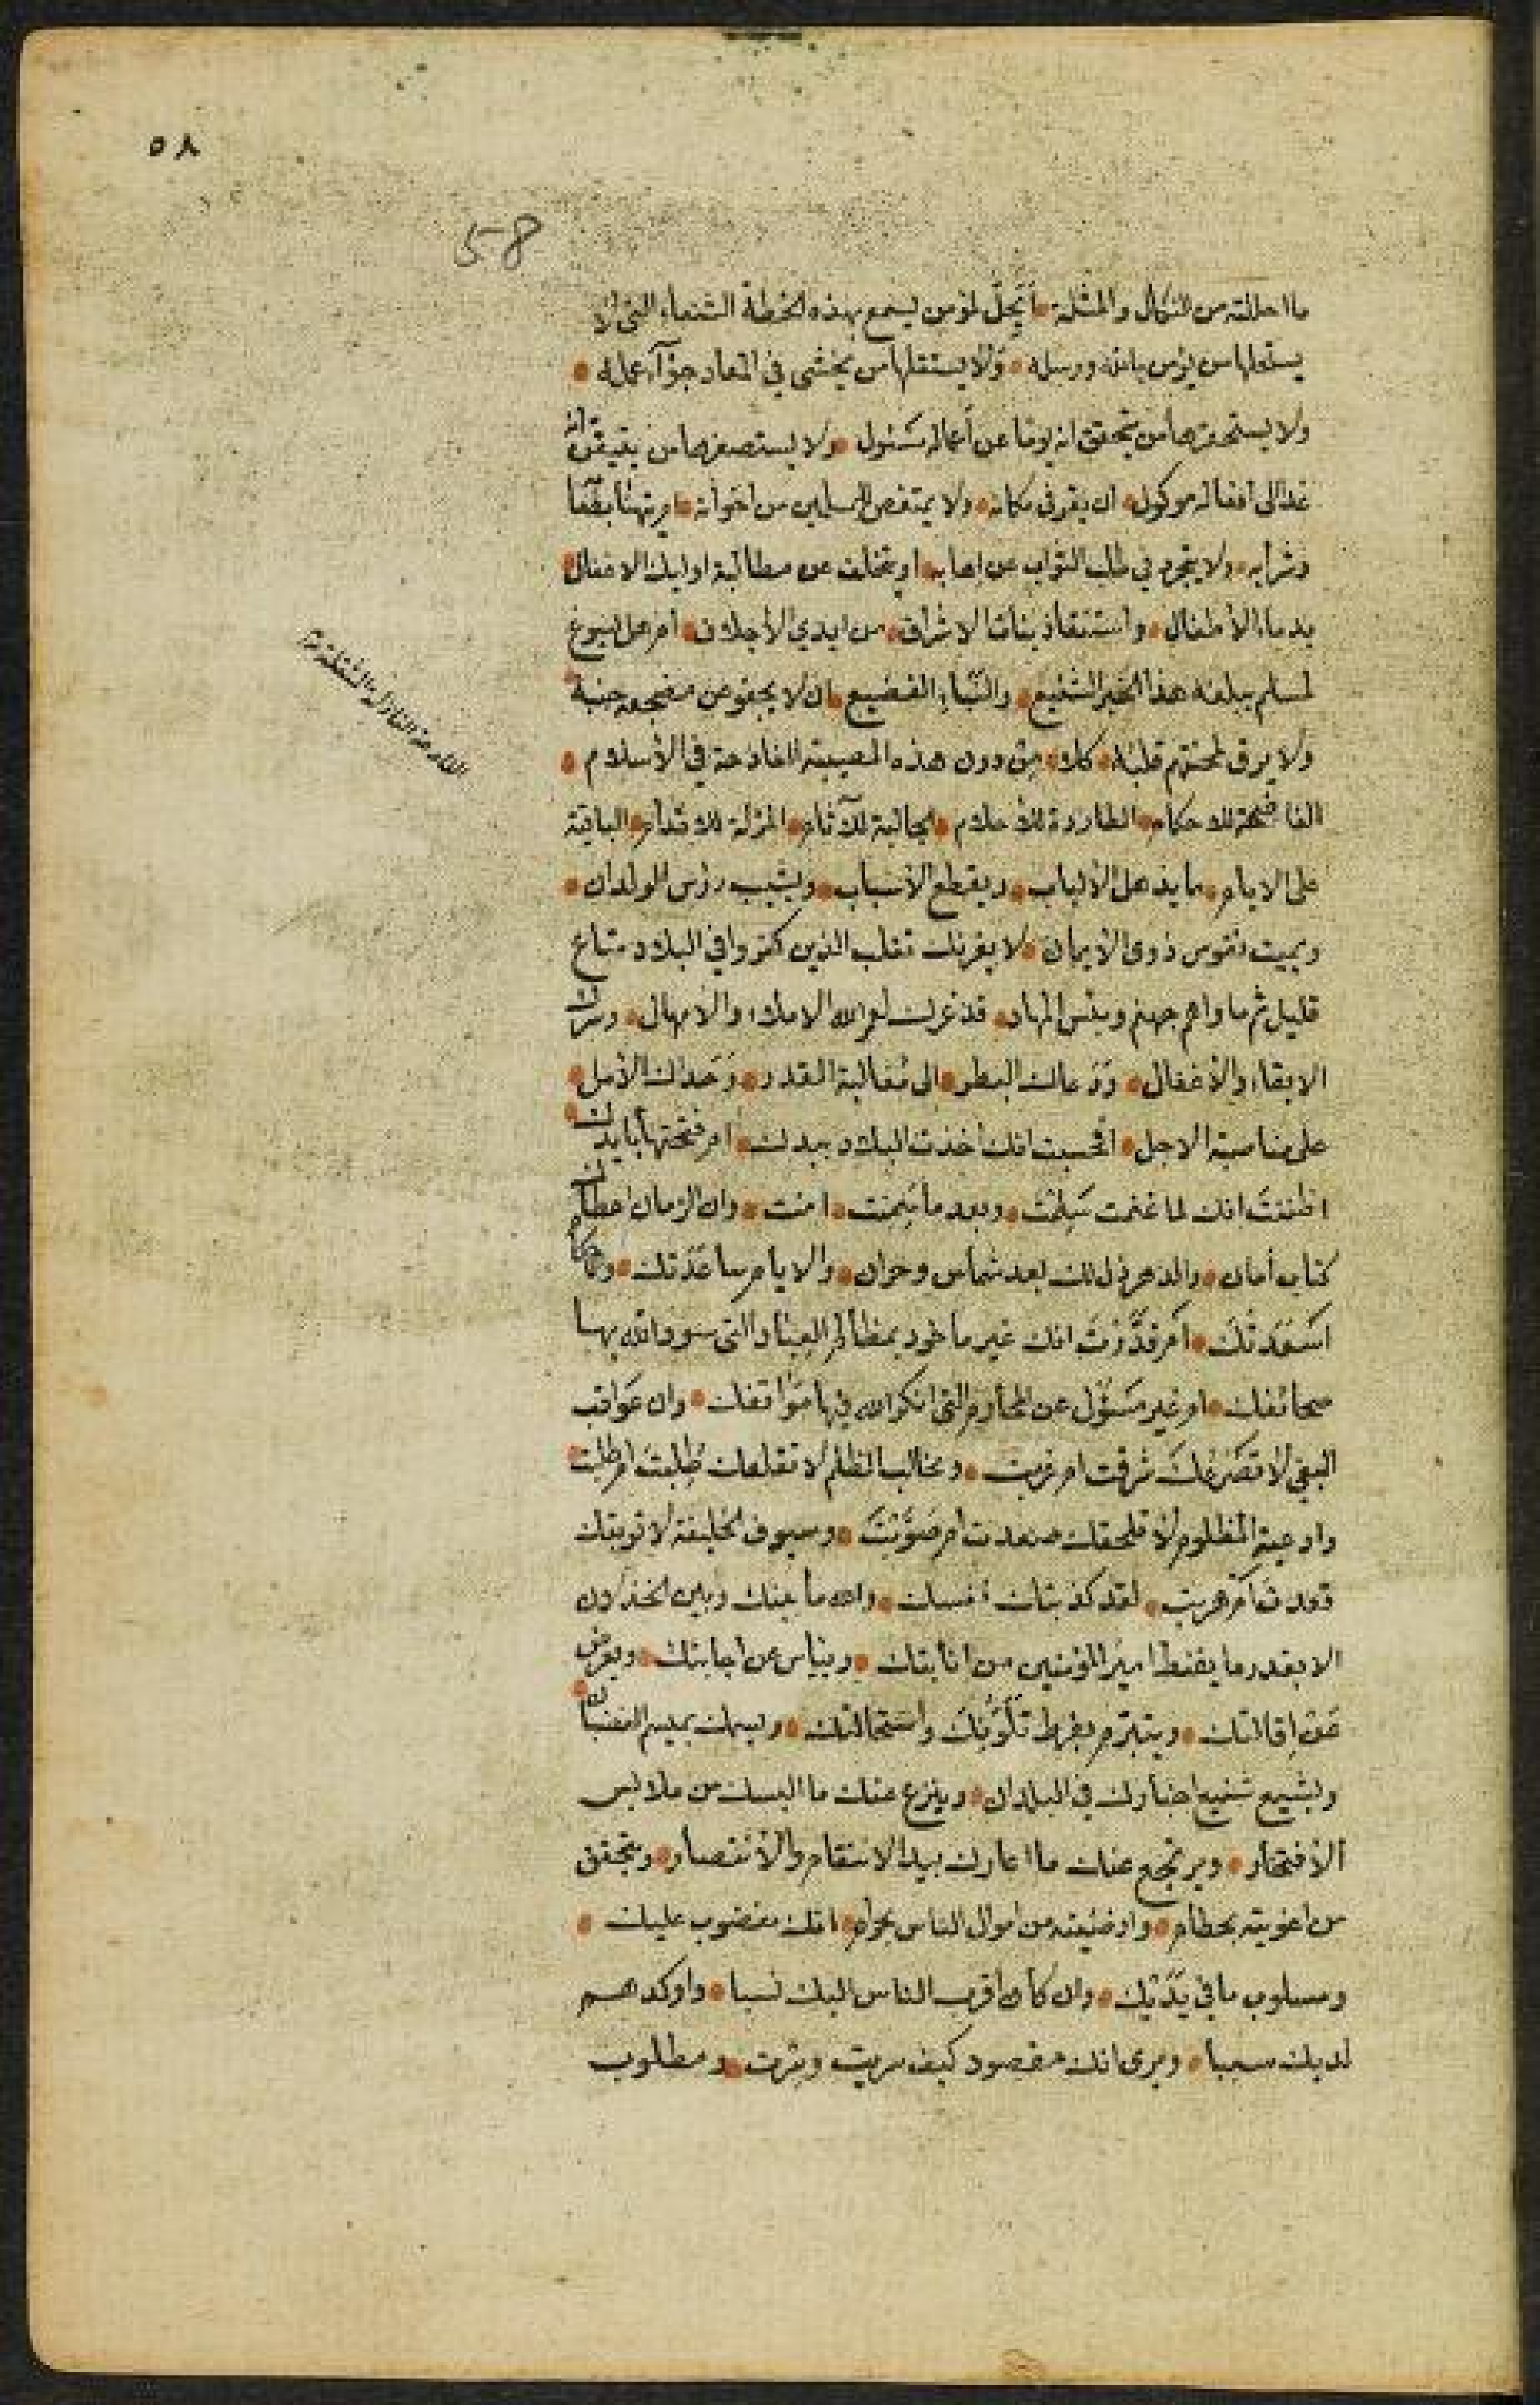 ٥٨
58
ما احللته من النكال والمثلة • ايحل لمؤمن يسمع بهذه الخطة الشنعاء التي لا
يستحلها من يؤمن بالله ورسله • ولا يستقلها من يخشى في المعاد جزآء عمله •
ولا يستحقرها من يتحقق انه يوما عن أعماله مسئول • ولا يستصغرها من يتيقن انه
غدا الى افعاله موكول • ان يقر في مكانه • ولا يمتعض للمسلمين من اخوانه •
وشرابه • ولا في طلب الثواب عن اصحابه • او يتخلف عن مطالبة اوليك الاغفال
بدماء الأطفال • واستنقاذ بنات الاشراف • من ايدي الأجلاف • ام هل يسوغ
لمسلم يبلغه هذا الخبر الشنيع • والنباء الفضيع • ان لا يجفو عن مضجعه جنبة
ولا يرق لمحنتهم قلبه • كلا • من دون هذه المصيبة الفادحة في الأسلام •
الفاضحة للاحكام • الطاردة للأحلام • الجالبة للآثام • المزلة للاقدام • الباقية
على الايام • ما يذهل الألباب • ويقطع الأسباب • ويشيب رؤس الولدان •
ويميت نفوس ذوى الأيمان • لا يغرنك تقلب الذين كفروا في البلاد متاع
قليل ثم ماواهم جهنم وبئس المهاد • قد غرك لعمر الله الاملاء والأمهال • وسرك
الابقاء والأغفال • ودعاك البطر • الى مغالبة القدر • وحداك الأمل •
على مناصبة الاجل • افحسبت انك اخذت البلاد بيدك • ام فتحتها بايدك •
اظننت انك لما غنمت سلمت • وبعد ما امنت • وان الزمان اعطاك
كتاب أمان • والدهر ذل لك بعد شماس وحران • والايام ساعدتك •
اسعدتك • ام قدرت انك غير ماخوذ بمظالم العباد التي سود الله بها
صحائفك • او غير مسؤل عن المحارم التي انكر الله فيها مواقفك • وان عواقب
البغي لا تصرعك شرقت ام غربت • ومخالب الظلم لا طلبت ام
وادعية المظلوم لا تلحقك صعدت ام صوبت • وسيوف الخليفة لا
قعدت ام هربت • لقد كذبتك نفسك • والله ما بينك وبين الخذلان
الا بقدر ما يقنط امير المؤمنين من انابتك • وييأس عن اجابتك • ويعرض
عن اقالتك • ويتبرم بفرط تلونك واستحالتك • ويسمك بميسم
ويشيع شنيع اخبارك في البلدان • وينزع عنك ما البسك من ملابس
الأفتخار • ويرتجع عنك ما اعارك بيد الانتقام والأنتصار • ويتحقق
من اغويته بحطام • وارضيته من اموال الناس بحرام • انك مغضوب عليك •
ومسلوب ما في يديك • وان كان اقرب الناس اليك نسبا • واوكدهم
لديك سببا • ويرى انك مقصود كيف سريت • ومطلوب